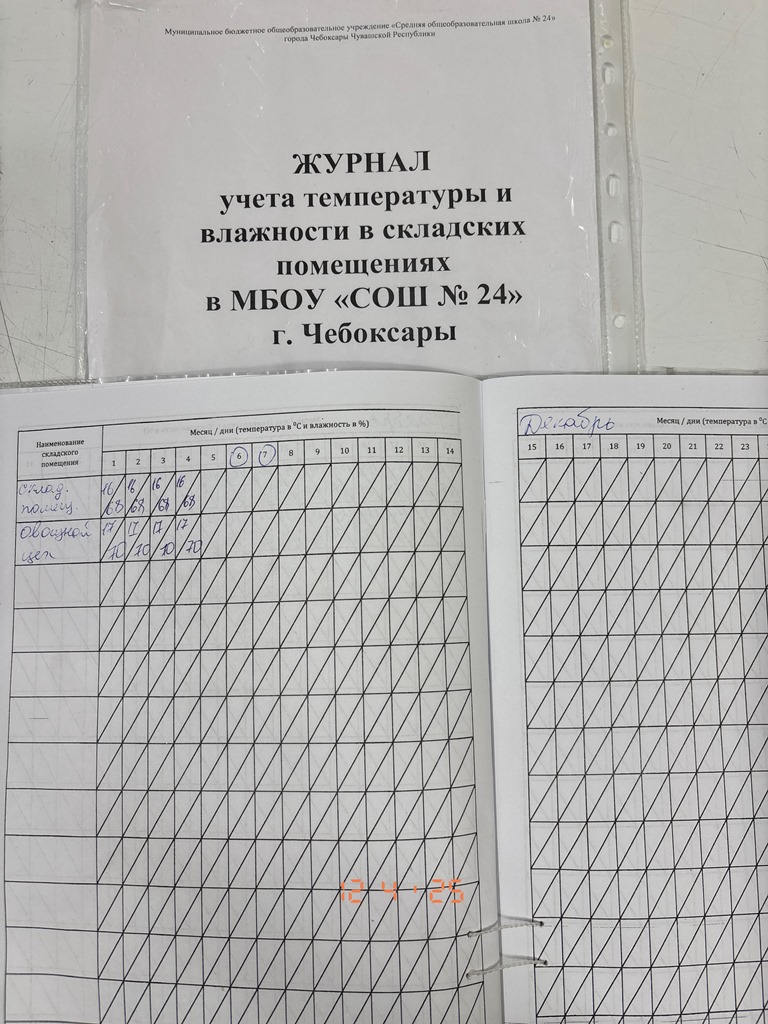 Муниципальное бюджетное общеобразовательное учреждение «Средняя общеобразовательная школа № 24»
города Чебоксары Чувашской Республики
ЖУРНАЛ
учета температуры и
влажности в складских
помещениях
в МБОУ «СОШ № 24»
г. Чебоксары
Наименование
складского
помещения
Месяц / дни (температура в ⁰С и влажность в %)
1 2 3 4 5 6 7 8 9 10 11 12 13 14
Склад. 16 16 16 16
помещ. 68 68 68 68
Овощной 17 17 17 17
цех 70 70 70 70
Декабрь
Месяц / дни (температура в ⁰С
15 16 17 18 19 20 21 22 23
12 4 '25